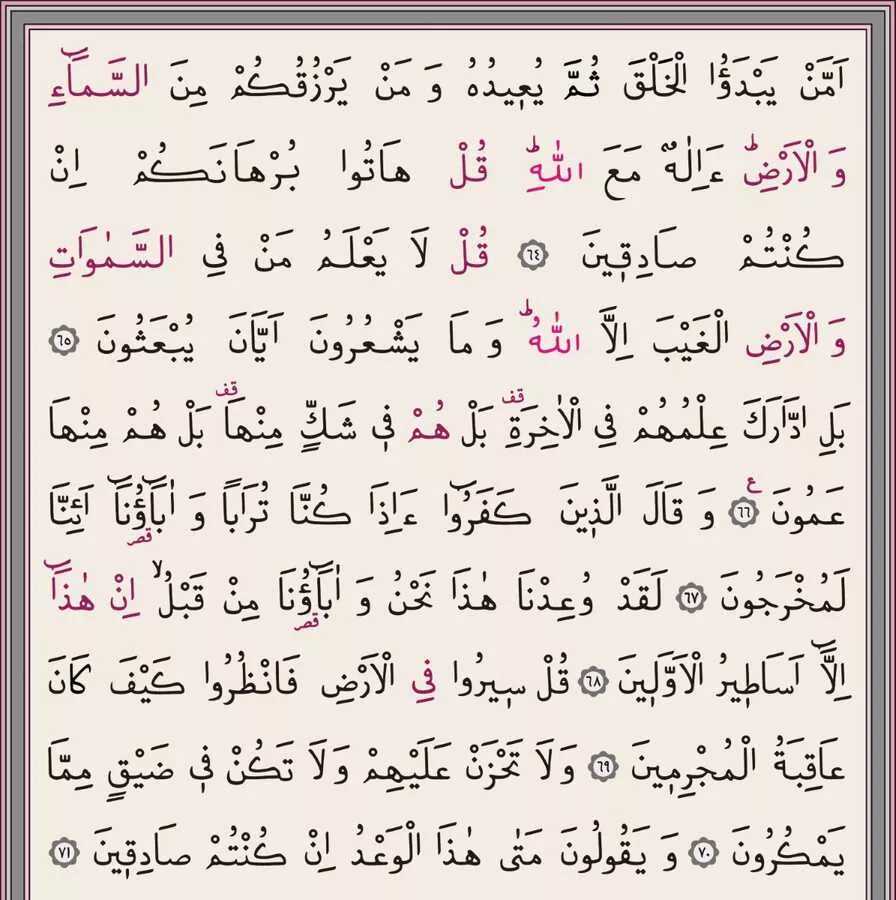 اَمَّنْ يَبْدَؤُا الْخَلْقَ ثُمَّ يُعٖيدُهُ وَ مَنْ يَرْزُقُكُمْ مِنَ السَّمَٓاءِ
وَ الْاَرْضِؕ ءَاِلٰهٌ مَعَ اللّٰهِؕ قُلْ هَاتُوا بُرْهَانَكُمْ اِنْ
كُنْتُمْ صَادِقٖينَ ﴿٦٤﴾ قُلْ لَا يَعْلَمُ مَنْ فِي السَّمٰوَاتِ
وَ الْاَرْضِ الْغَيْبَ اِلَّا اللّٰهُؕ وَ مَا يَشْعُرُونَ اَيَّانَ يُبْعَثُونَ ﴿٦٥﴾
بَلِ ادَّارَكَ عِلْمُهُمْ فِي الْاٰخِرَةِ قف بَلْ هُمْ فٖي شَكٍّ مِنْهَا قف بَلْ هُمْ مِنْهَا
عَمُونَ ﴿٦٦﴾ ع وَ قَالَ الَّذٖينَ كَفَرُٓوا ءَاِذَا كُنَّا تُرَابًا وَ اٰبَٓاؤُنَٓا قصر اَئِنَّا
لَمُخْرَجُونَ ﴿٦٧﴾ لَقَدْ وُعِدْنَا هٰذَا نَحْنُ وَ اٰبَٓاؤُنَا قصر مِنْ قَبْلُۙ اِنْ هٰذَٓا
اِلَّٓا اَسَاطٖيرُ الْاَوَّلٖينَ ﴿٦٨﴾ قُلْ سٖيرُوا فِي الْاَرْضِ فَانْظُرُوا كَيْفَ كَانَ
عَاقِبَةُ الْمُجْرِمٖينَ ﴿٦٩﴾ وَلَا تَحْزَنْ عَلَيْهِمْ وَلَا تَكُنْ فٖي ضَيْقٍ مِمَّا
يَمْكُرُونَ ﴿٧٠﴾ وَ يَقُولُونَ مَتٰى هٰذَا الْوَعْدُ اِنْ كُنْتُمْ صَادِقٖينَ ﴿٧١﴾